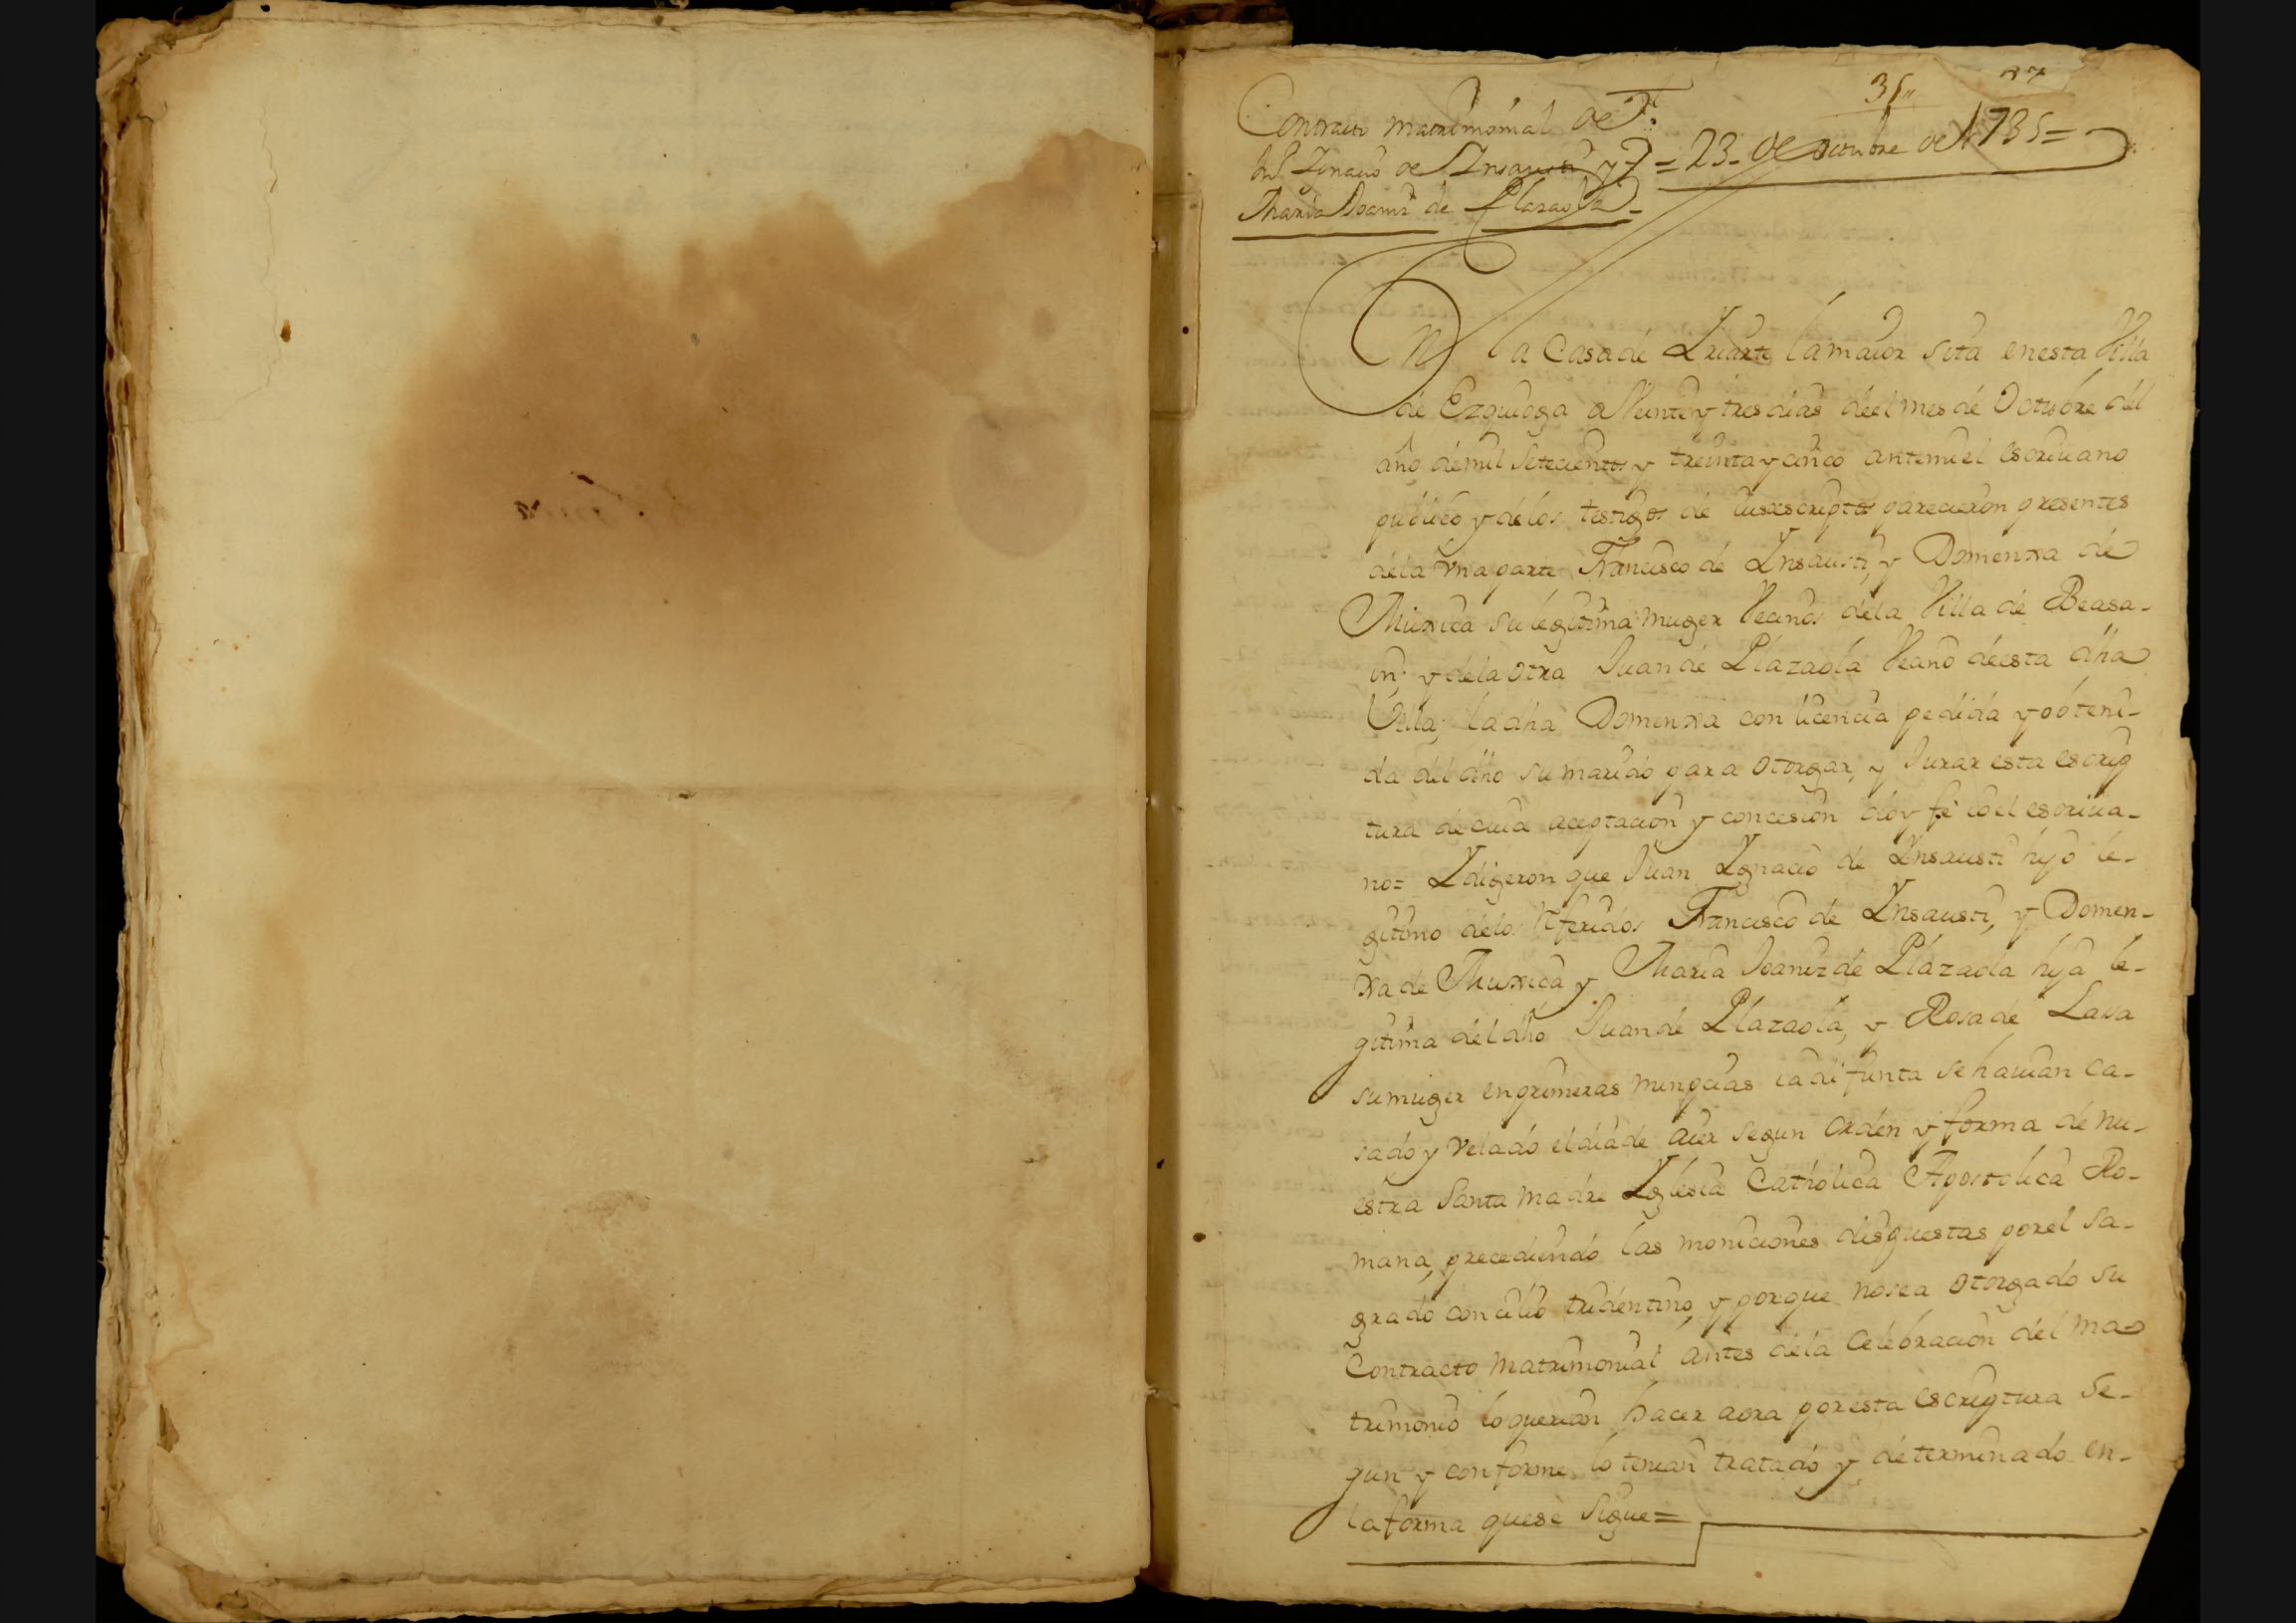 35 37
Contracto matrimonial de Jⁿ
Ignacio de Insausti y = 23 de octubre de 1735=
Maria Joaniz de Plazaola
En la Casa de Yriarte la maior sita en esta Villa
de Ezquioga a Veinte y tres dias de el mes de Octubre del
año de mil Setecientos y treinta y cinco ante mi el escriuano
publico y de los testigos de iuso escriptos parecieron presentes
de la vna parte Francisco de Ynsausti, y Domenxa de
Muxica su legitima muger Vecinos de la Villa de Beasa-
in; y de la otra Juan de Plazaola Vecino de esta dha
Villa; la dha Domenxa con licencia pedida y obteni-
da del dho su marido para otorgar, y Jurar esta escrip
tura de cuia aceptacion y concesion doy fe io el escriua-
no= Y digeron que Juan Ygnacio de Ynsausti hijo le-
gitimo de los Referidos Francisco de Ynsausti, y Domen-
xa de Muxica y Maria Joaniz de Plazaola hija le-
gitima del dho Juan de Plazaola, y Rosa de Lasa
su muger en primeras nuncias ia difunta se hauian ca-
sado y velado el dia de aier segun orden y forma de nu-
estra Santa madre Yglesia Catholica Apostolica Ro-
mana, precediendo las moniciones dispuestas por el Sa-
grado concilio tridentino, y porque no sea otorgado su
Contracto matrimonial antes de la Celebracion del ma-
trimonio lo querian hacer aora por esta escriptura se-
gun y conforme lo tenian tratado y determinado en-
la forma que se sigue=